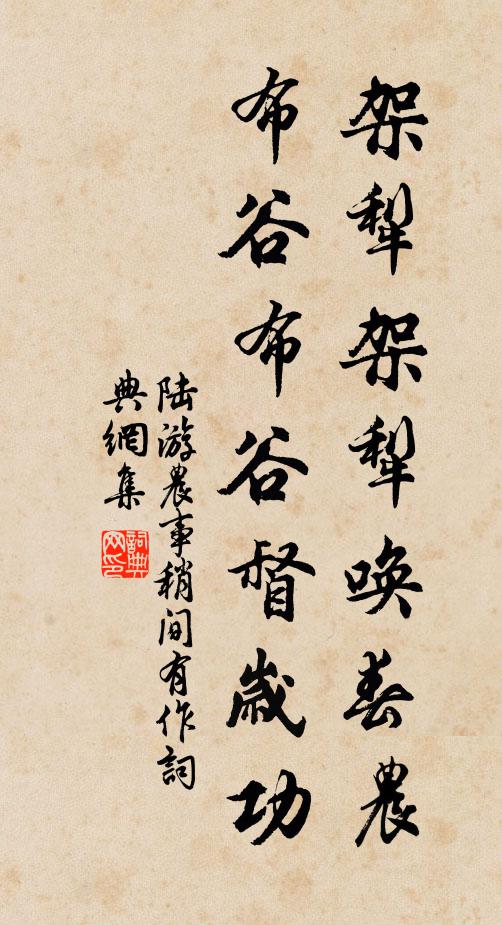 架犁架犁唤春農
布谷布谷督歲功
陆游農事稍间有作詞
典網集
詞典网印